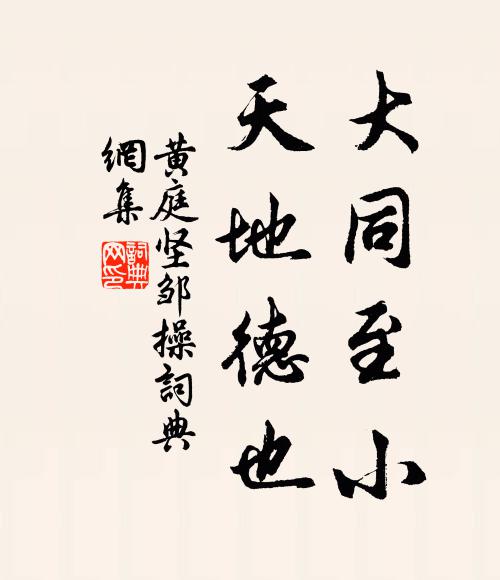 大同至小
天地德也
黄庭坚邹操詞典
網集
詞典网印